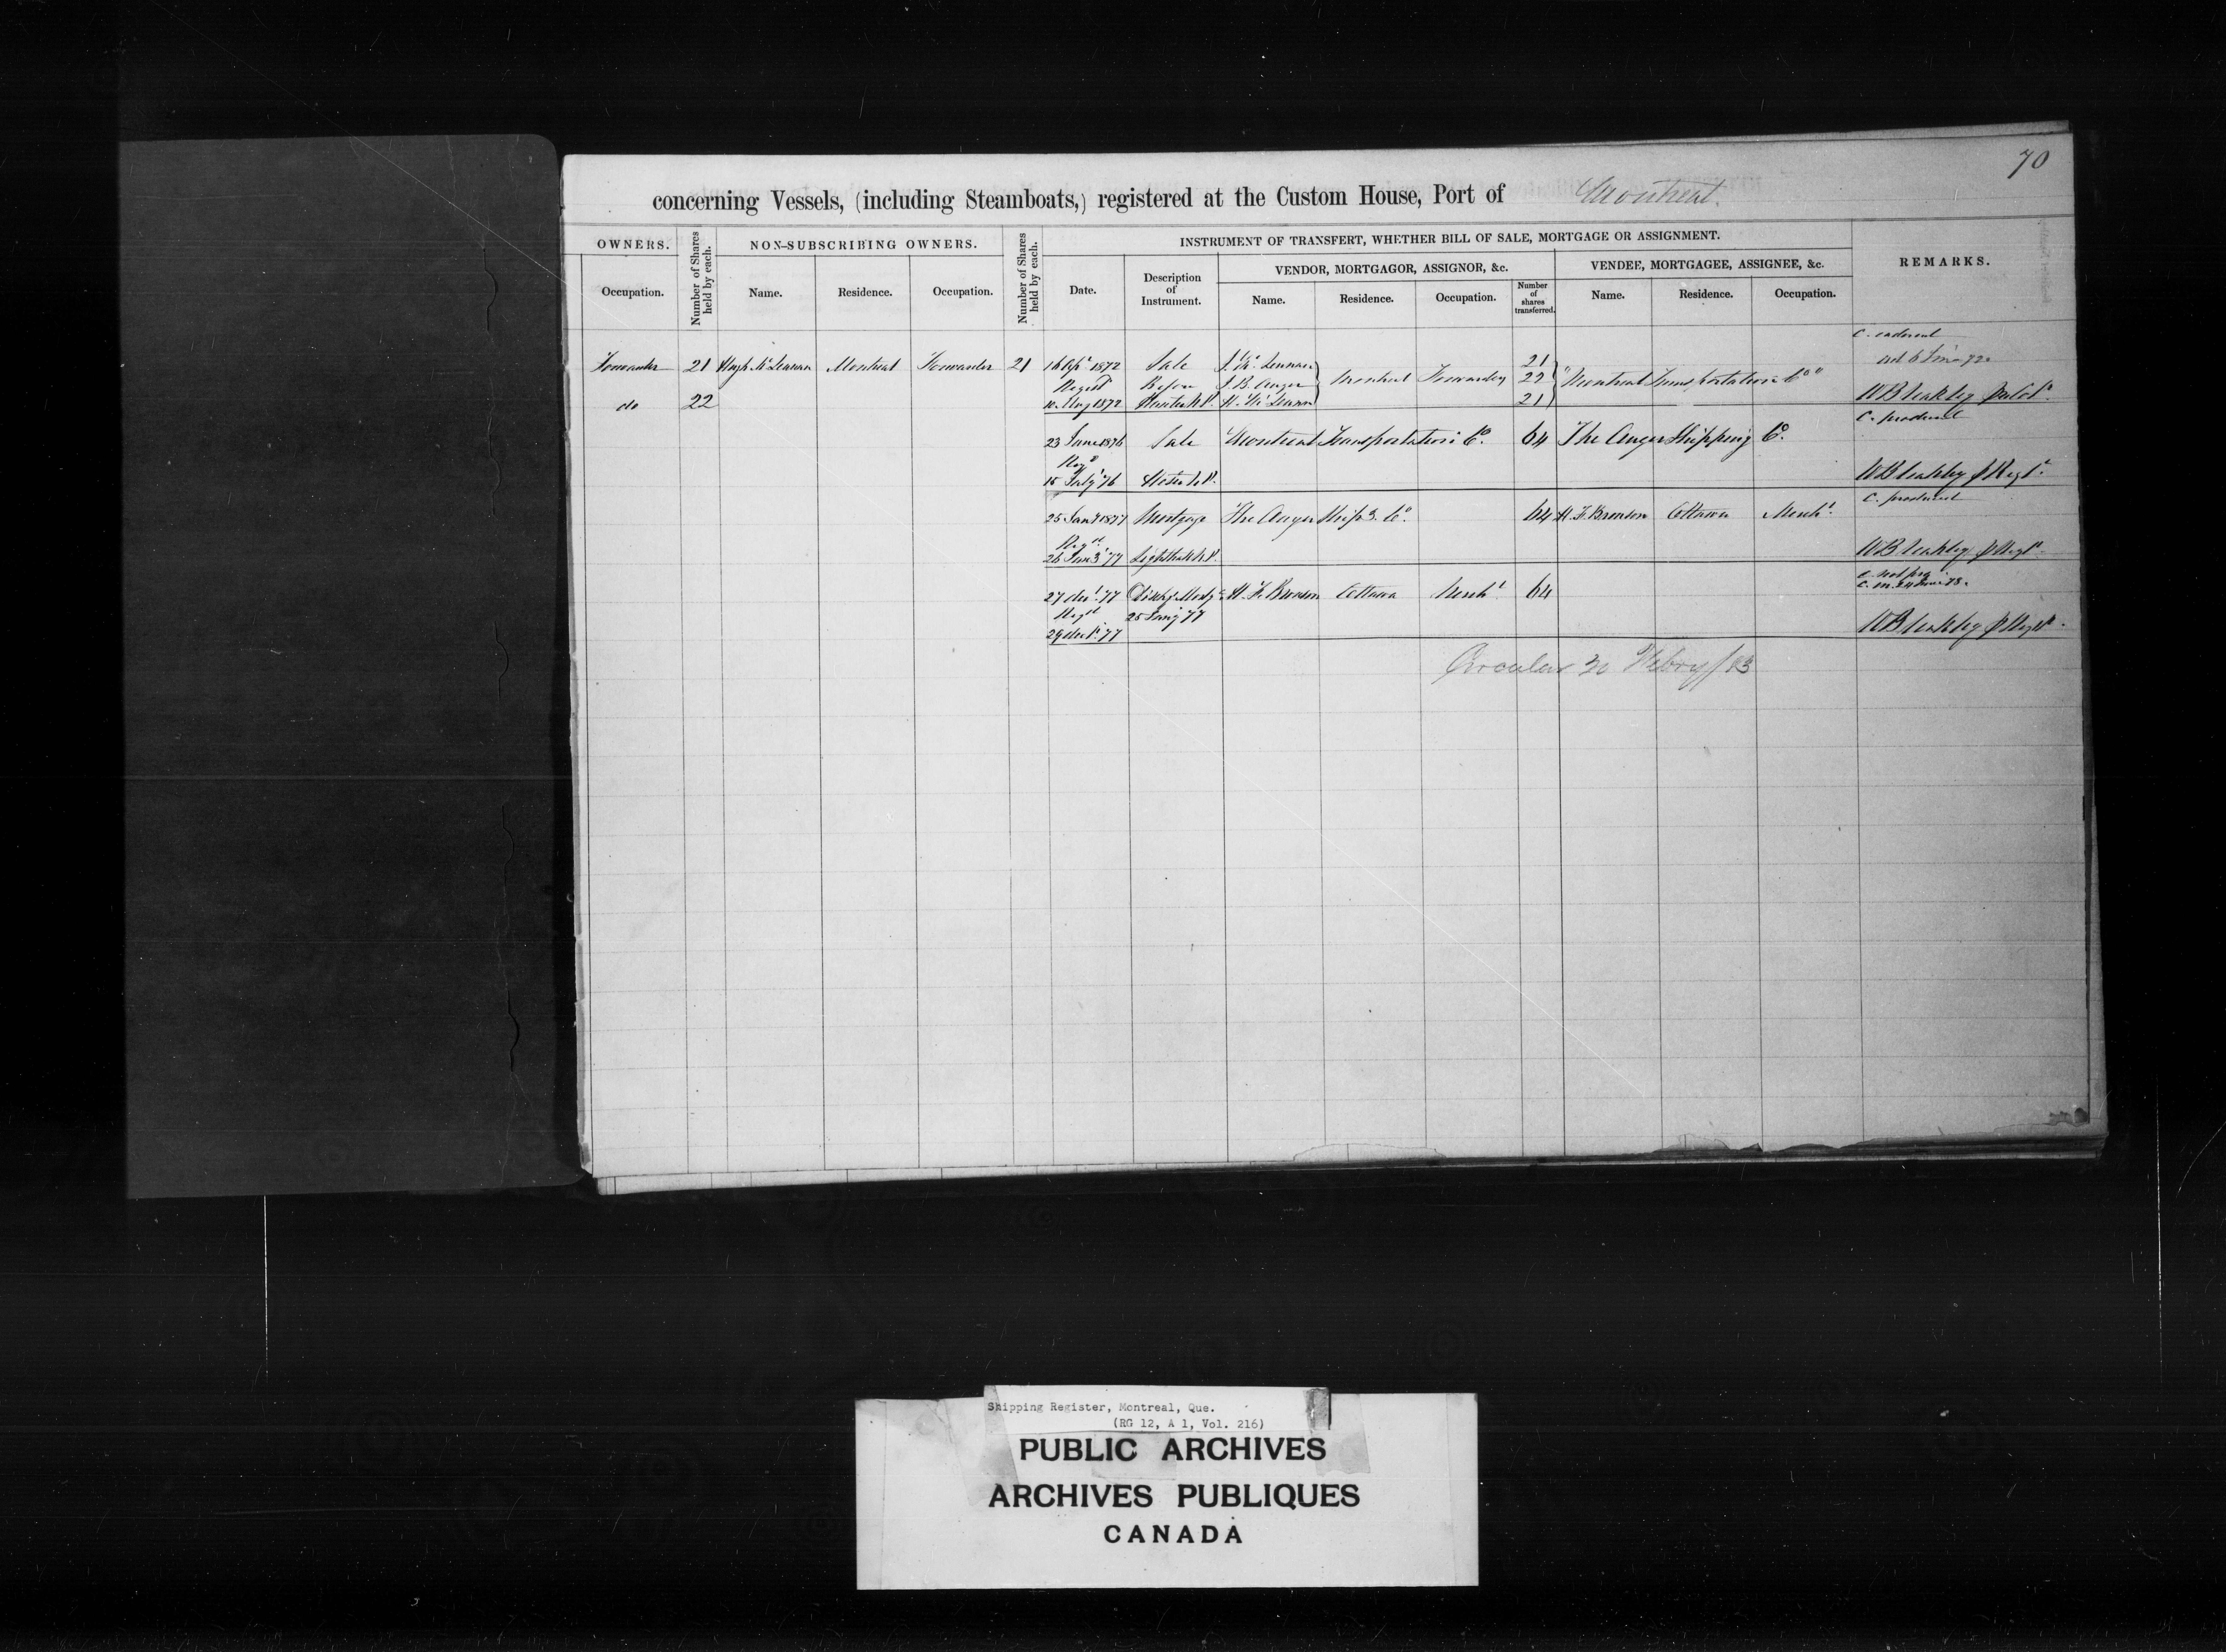 70
concerning Vessels, (including Steamboats,) registered at the Custom House, Port of Montreal.
OWNERS.
Number of Shares held by each.
NON-SUBSCRIBING OWNERS.
Number of Shares held by each.
INSTRUMENT OF TRANSFERT, WHETHER BILL OF SALE, MORTGAGE OR ASSIGNMENT.
REMARKS.
VENDOR, MORTGAGOR, ASSIGNOR, &c.
VENDEE, MORTGAGEE, ASSIGNEE, &c.
Occupation. Name. Residence. Occupation. Date. Description of Instrument. Name. Residence. Occupation. Number of shares transferred. Name. Residence. Occupation.
Forwarder 21 Hugh McLennan Montreal Forwarder 21 16 Apl 1872 Sale J. McLennan 21
Regist Before J. B. Auger Montreal Forwarders 22 "Montreal Transportation Co"
do 22 10 Aug 1872 H. McLennan 21
C. produced
23 June 1876 Sale Montreal Transportation Co. 64 The Auger Shipping Co.
Regd
15 July '76
C. produced
25 Jany 1877 Mortgage The Auger Shipg. Co. 64 H. F. Bronson Ottawa Mercht.
Regd
26 Jany '77 Lighthall N.P.
27 Dec. '77 Dischg. Mortg. H. F. Bronson Ottawa Mercht. 64
Regd 25 Jany 77
29 Dec. '77
Circular 30 Febry/83
Shipping Register, Montreal, Que.
(RG 12, A 1, Vol. 216)
PUBLIC ARCHIVES
ARCHIVES PUBLIQUES
CANADA